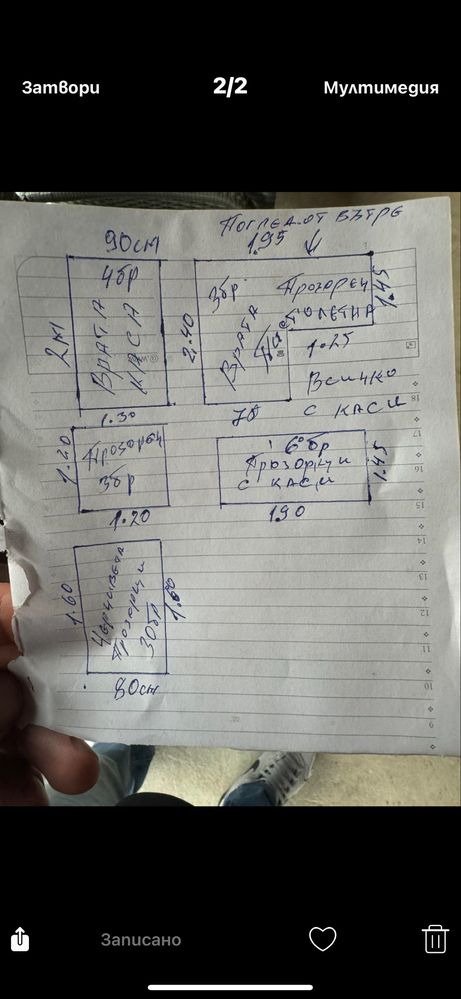 Затвори
2/2
Мултимедия
ПОГЛЕД ОТ ВЪТРЕ
90см
1.95
4бр
ВРАТА
КАСА
2м
3бр
ВРАТА
2.40
Прозорец
1.45
1.25
Всичко
с каси
1.30
70
1.20
Прозорец
3бр
1.20
6бр
Прозорци
с каси
1.45
190
1.60
Прозорци
30бр
1.60
80см
18
17
16
15
14
13
12
11
10
9
Записано